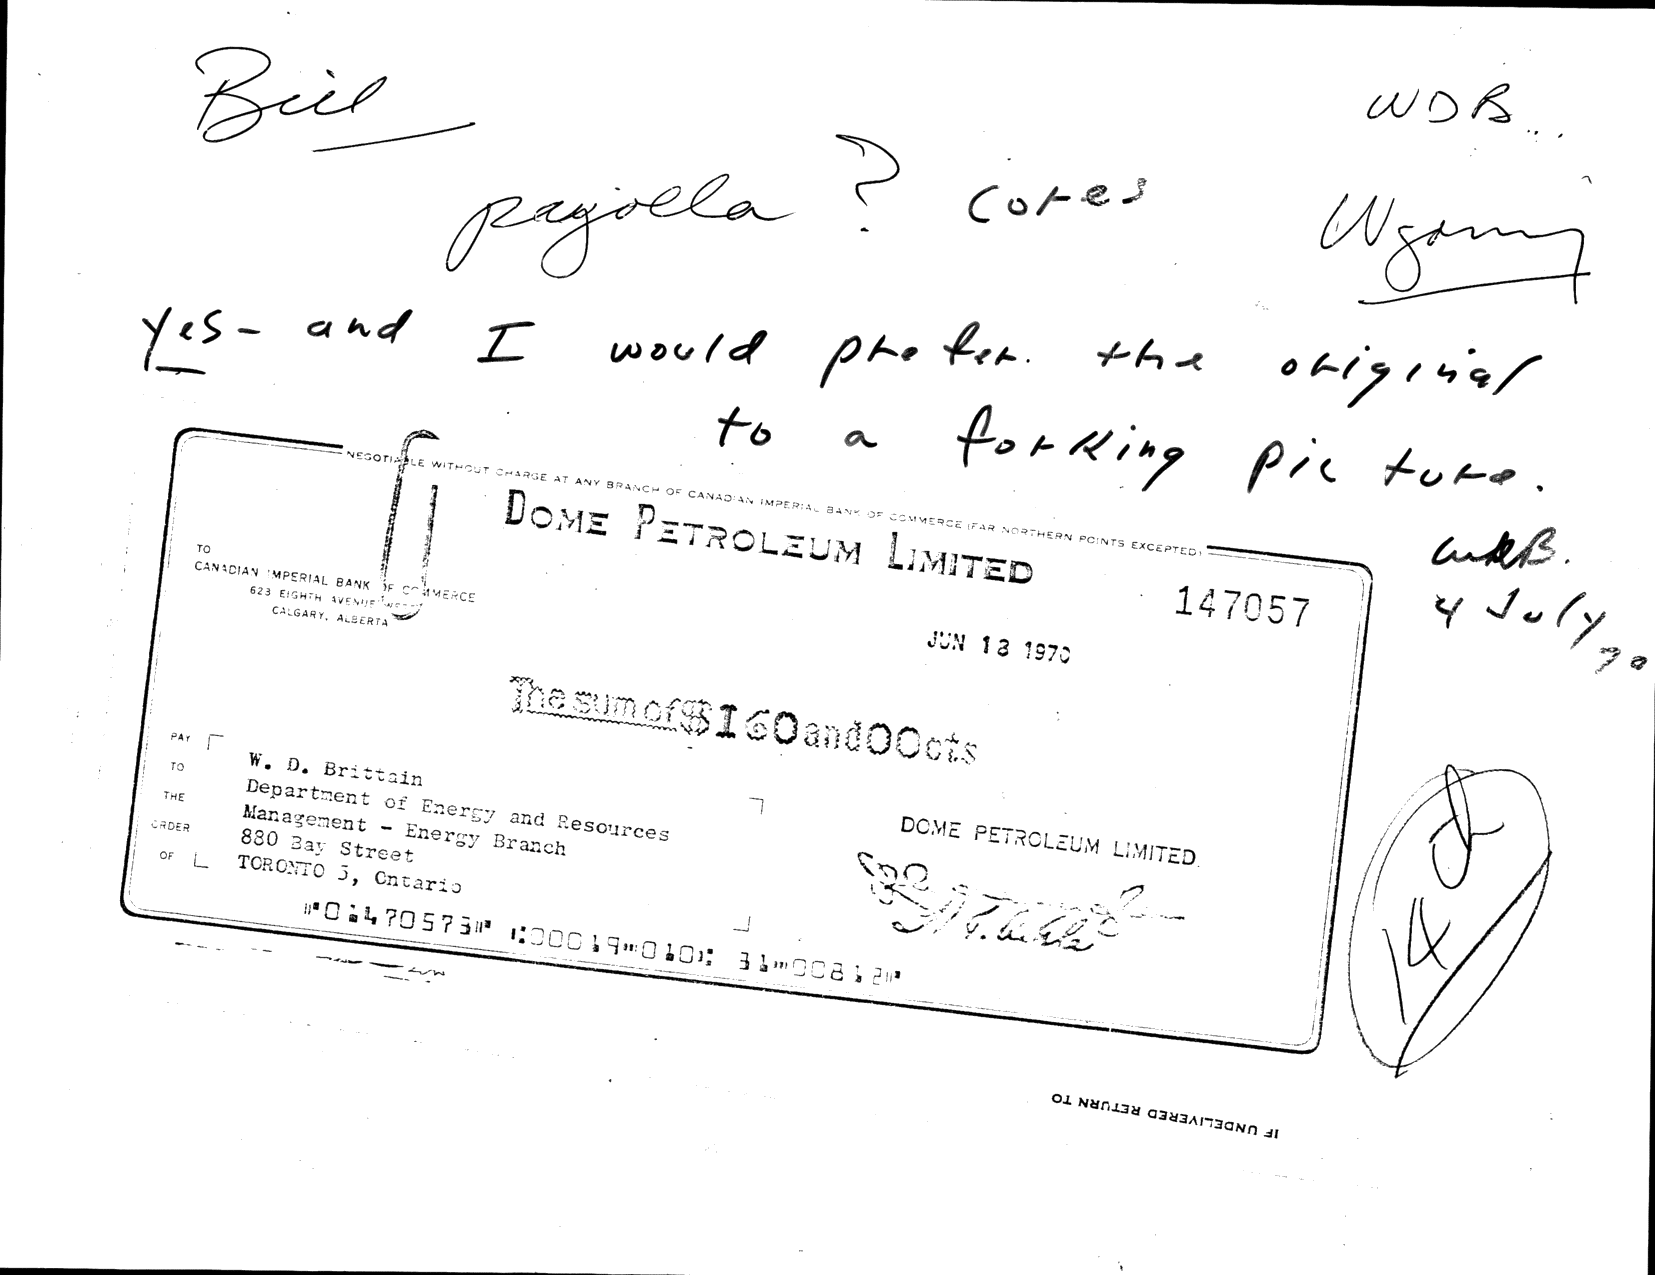 Bill
WDB...
payolla ? cores
Wyoming
yes - and I would prefer. the original
to a forking picture.
WDB.
4 July 70
NEGOTIABLE WITHOUT CHARGE AT ANY BRANCH OF CANADIAN IMPERIAL BANK OF COMMERCE (FAR NORTHERN POINTS EXCEPTED)
DOME PETROLEUM LIMITED
TO
CANADIAN IMPERIAL BANK OF COMMERCE
623 EIGHTH AVENUE WEST
CALGARY, ALBERTA
147057
JUN 18 1970
The sum of $160 and 00 cts
PAY
TO
THE
ORDER
OF
W. D. Brittain
Department of Energy and Resources
Management - Energy Branch
880 Bay Street
TORONTO 5, Ontario
DOME PETROLEUM LIMITED
⑈01470573⑈ ⑆00019⑉010⑆ 31⑉00812⑈
14
IF UNDELIVERED RETURN TO